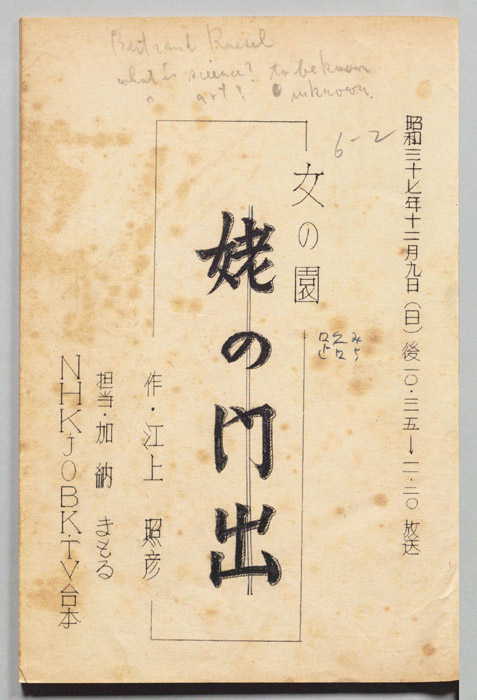 Bertrand Russel
what is science? to be known
〃 art? unknown.
6-2
昭和三十七年十二月九日(日)後一〇・三五→一一・二〇 放送
女の園
みち
姥の門出
作・江上 照彦
担当・加納 まもる
NHKJOBK・TV台本